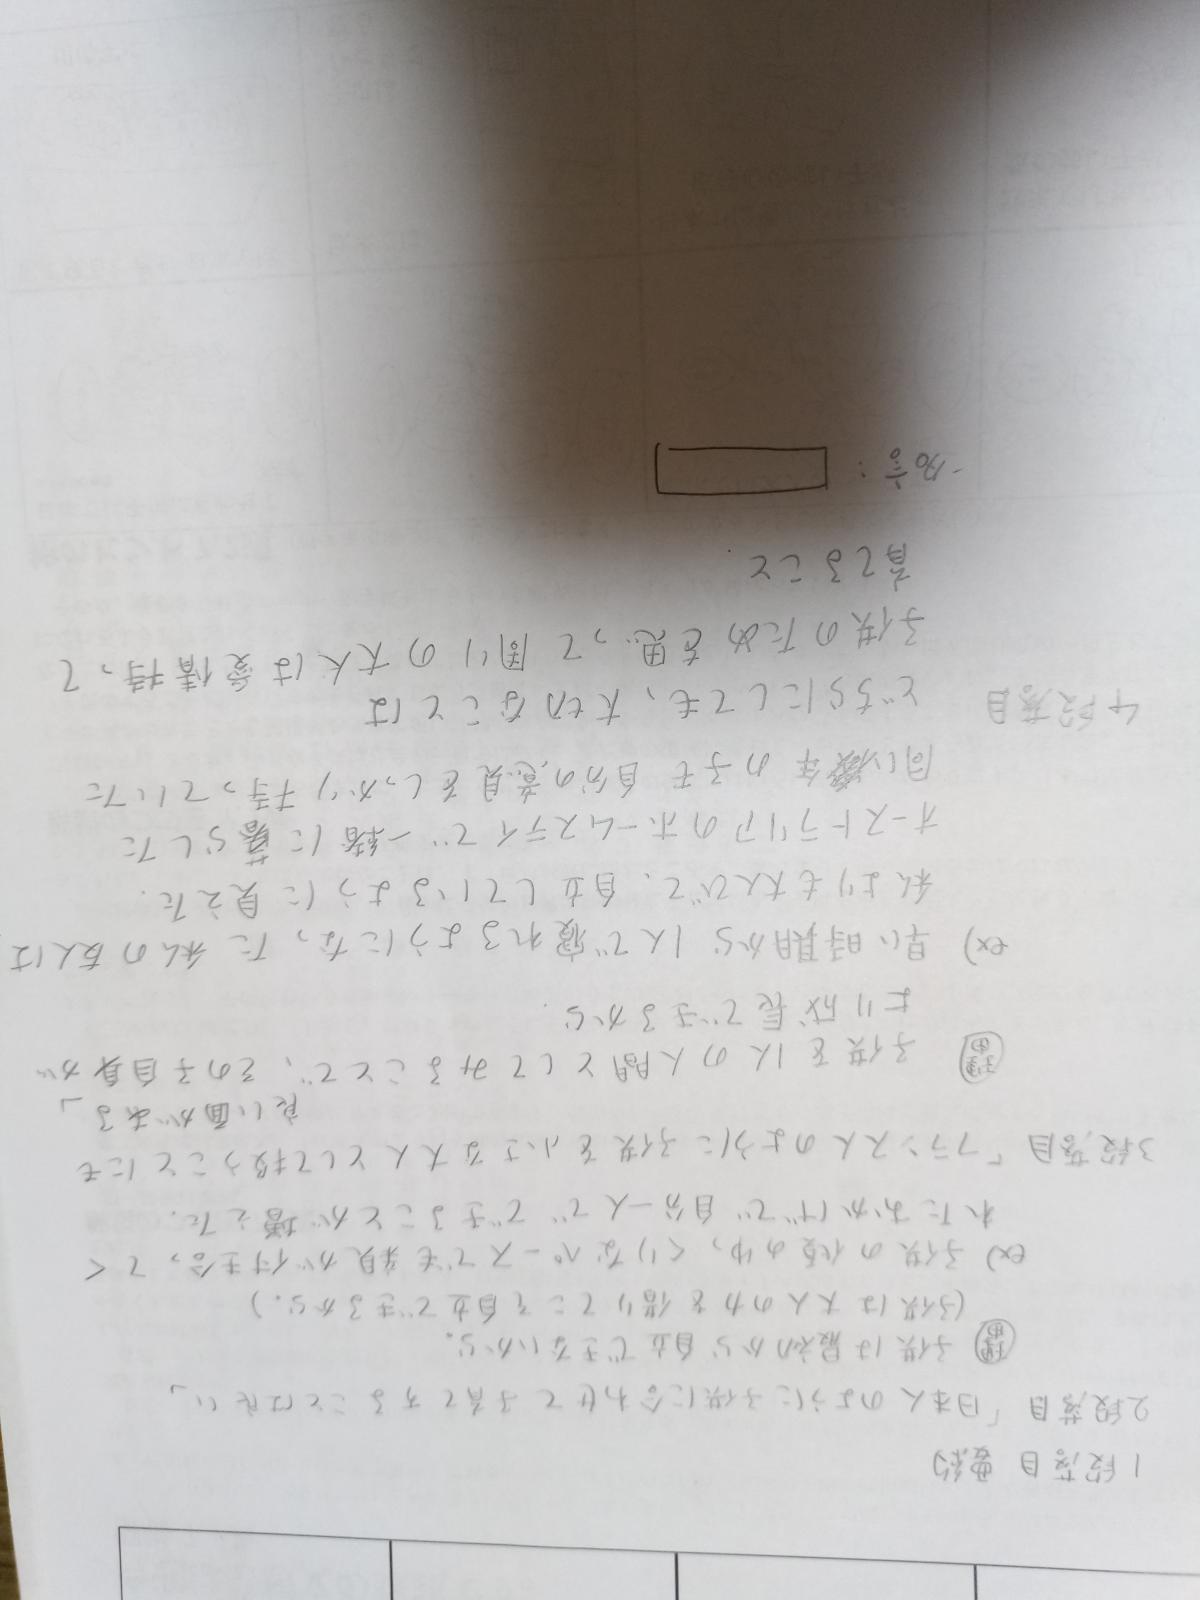 1段落目 要約
2段落目「日本人のように子供に合わせて子育てすることは良い」
理由 子供は最初から自立できないから。
(子供は大人の力を借りてこそ自立できるから。)
ex) 子供の頃のゆっくりなペースでも親が付き合ってく
れたおかげで自分一人でできることが増えた.
3段落目「フランス人のように子供を小さな大人として扱うことにも
良い面がある」
理由 子供を1人の人間としてみることで、その子自身が
より成長できるから.
ex) 早い時期から1人で寝れるようになった私の友人は
私よりも大人びて、自立しているように見えた.
オーストラリアのホームステイで一緒に暮らした
同い年の子も自分の意見をしっかり持っていた
4段落目 どちらにしても、大切なことは
子供のためを思って周りの大人は愛情持って
育てること.
一般名言: